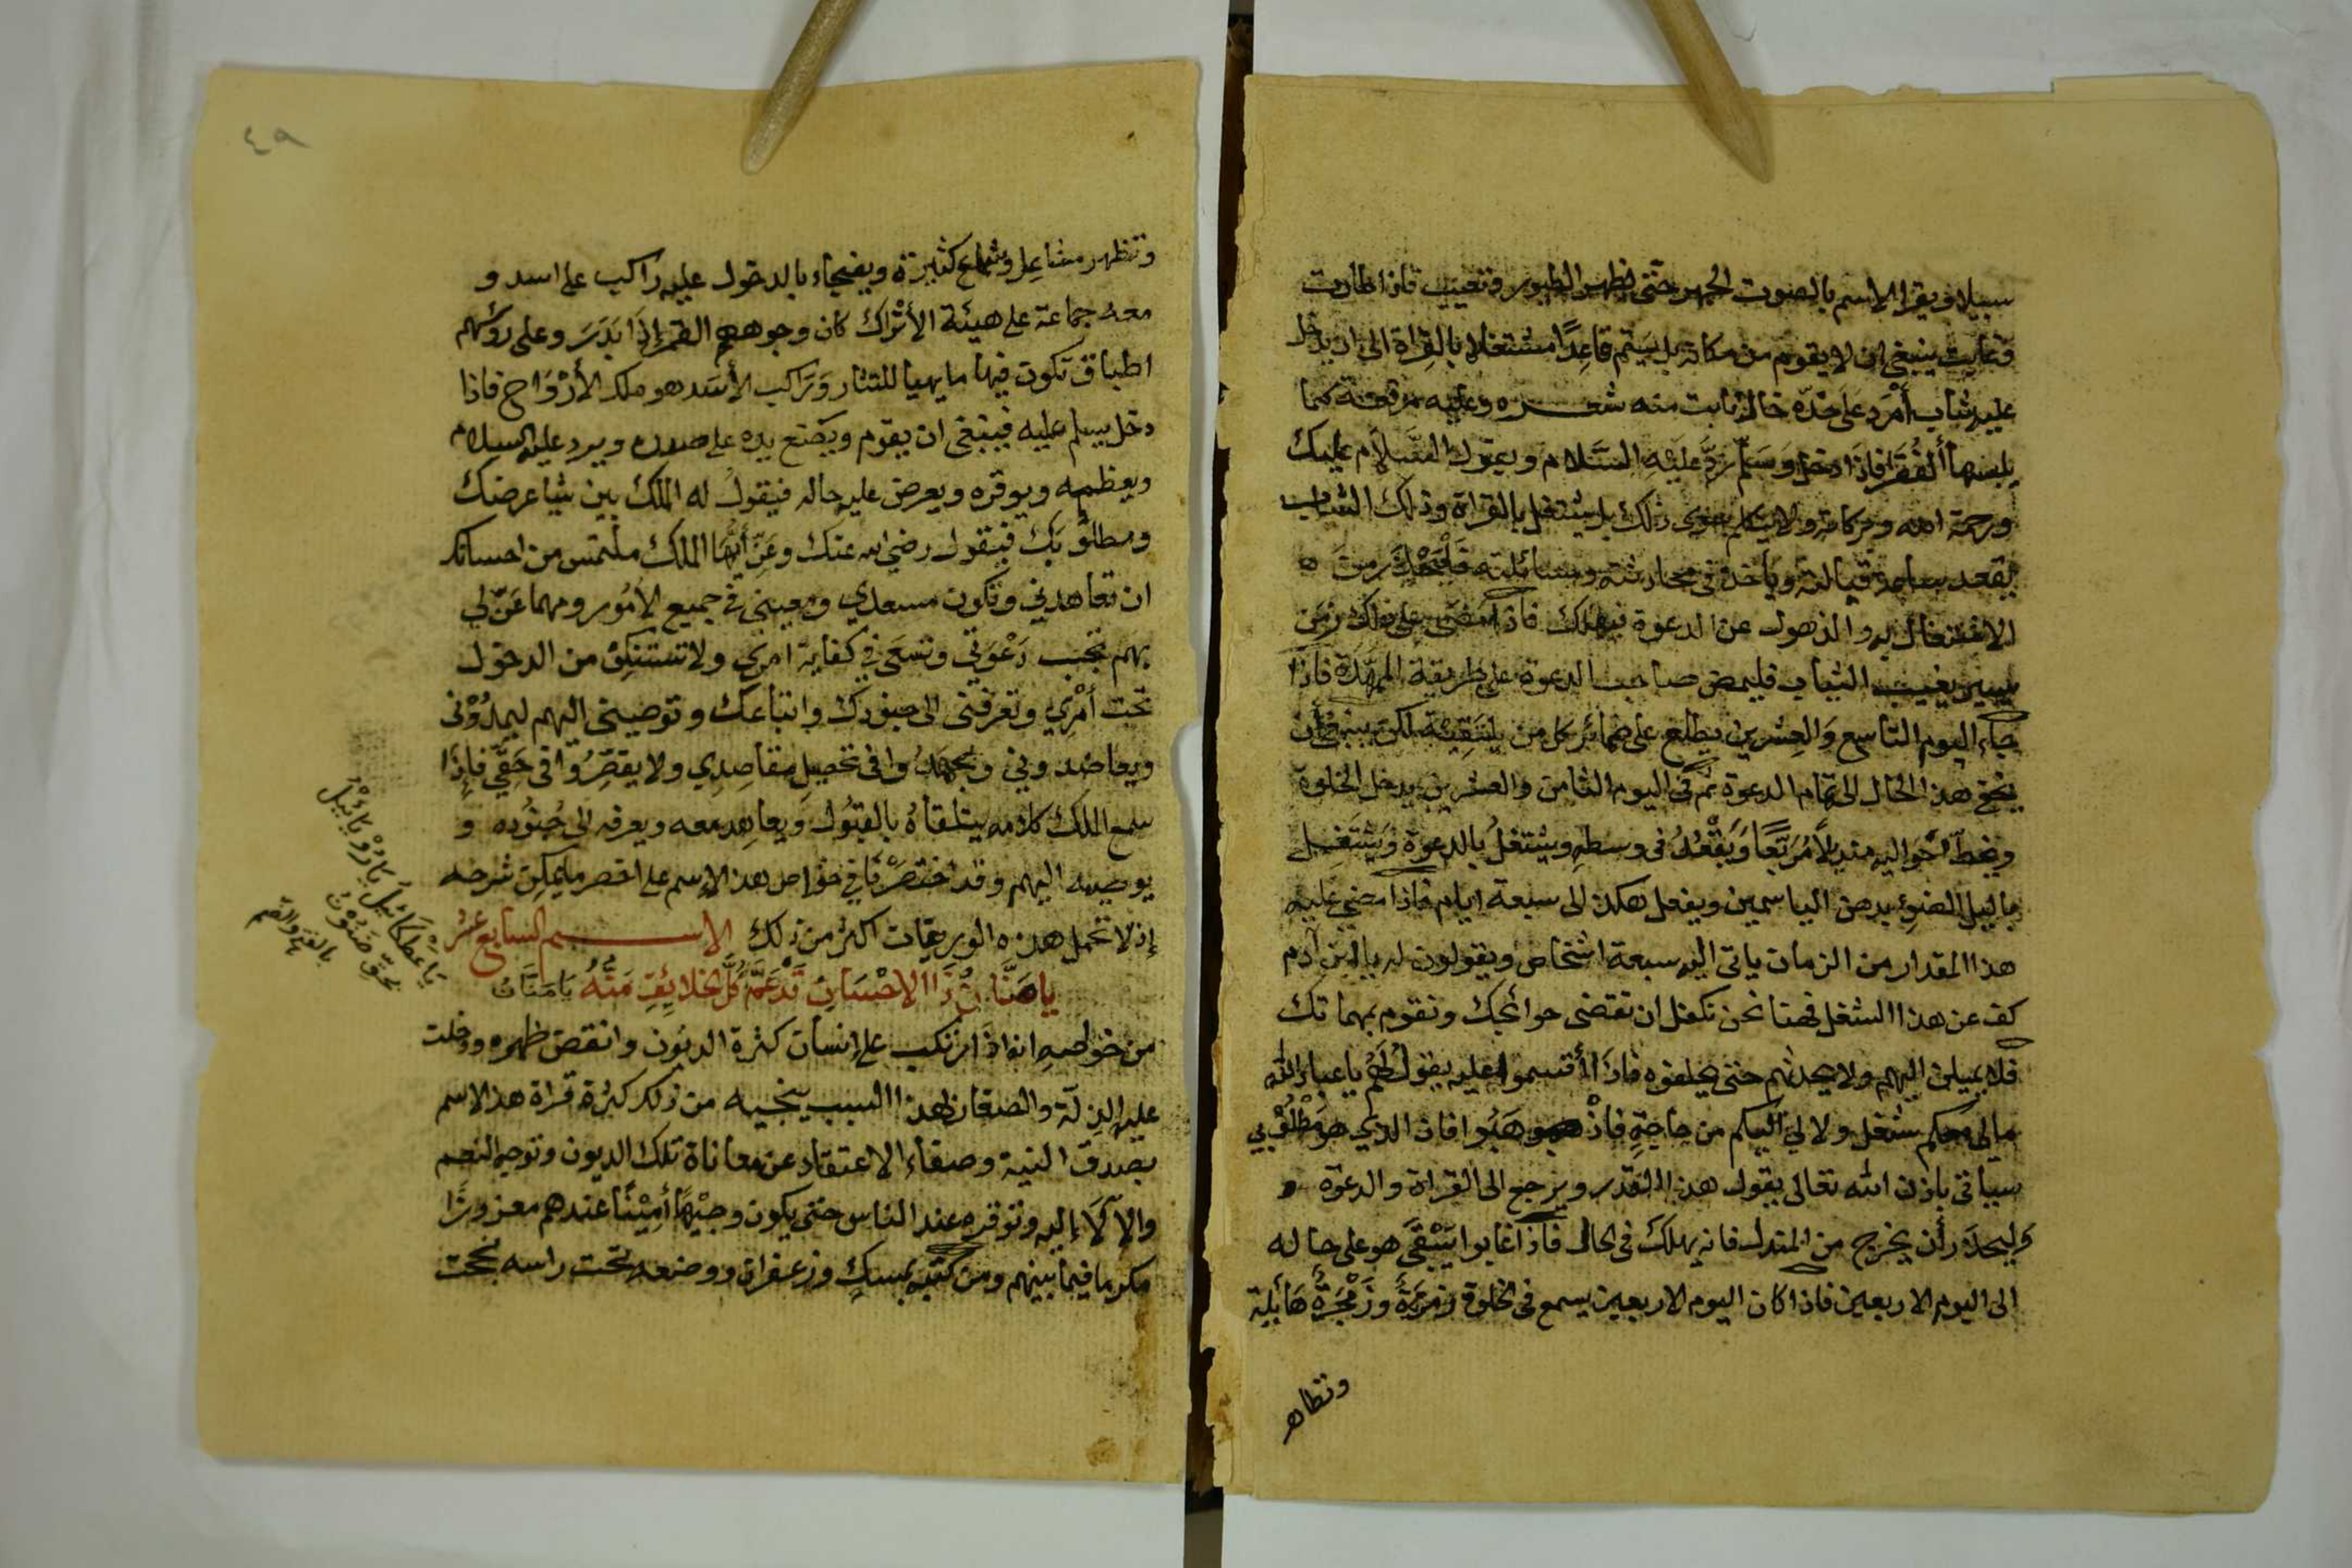 سبيلا ويقرا الاسم بالصوت الجهر حتى تظهر الطيور وتغيب فاذا طارت
وغابت ينبغي ان لا يقوم من مكانه بل يستم قاعدًا مشتغلا بالقراة الى ان يدخل
عليه شاب أمرد على خدّه خال نابت منه شعره وعليه مرقعة كما
يلبسها ألفُقَرا فاذا دخل وَسَلّم ردَّ عَلَيْهِ السَّلام ويقول السَّلَام عليك
ورحمة الله وبركاته ولا يتكلم سوى ذلك بل يشتغل بالقراة وذلك الشاب
يقعد ساعة قبالته ويأخذ في محادثته ومسائلته فَلْيَحْذَر من
الاشتغال به والذهول عن الدعوة فيهلك فاذا مضى على ذلك زمن
يسير يغيب الشاب فليمض صاحب الدعوة على طريقة الممهدة فاذا
جاء اليوم التاسع وَالعِشرين يطلع على ضمائر كل من يلتقيه لكن ينبغي أن
يخفي هذا الحال الى تمام الدعوة ثم في اليوم الثامن والعشرين يدخل الخلوة
ويخطّ حَوَاليه منديلًا مُرَبَّعًا وَيَقْعُدُ في وسطه ويشتغلُ بالدعوة وَيَشْتَغِل
بالليل الضوء بدهن الياسمين ويفعل هكذا الى سبعة ايام فاذا مضي عليه
هذا المقدار من الزمان ياتي اليه سبعة اشخاص ويقولون له يا ابن آدم
كف عن هذا الشغل فهنا نحن نكفل ان نقتضى حوائجك ونقوم بمهماتك
فلا يميلن اليهم ولا يحدثهم حتى يحلفوه فاذَا أقسموا عليه يقولُ لَهُمْ يا عبادالله
مالي معكم شغل ولا لي اليكم من حاجةٍ فاذْهبوا فان الذي هو مَطْلُوْبي
سياتي باذن الله تعالى يقول هذا القدر ويرجع الى القراة والدعوة و
وَليحذَر أن يخرج من المندل فانه يهلك في الحال فاذا غابوا يَبْقَى هو على حاله
الى اليوم الاربعين فاذا كان اليوم الاربعين يسمع في الخلوة زمزمَةً وزَمْجَرةً هَائلة
وتظاهر
٤٩
وتظهر مشاعِل وشماع كثيرة ويفيجاء بالدخول عليه راكب على اسد و
معه جماعة على هيئة الأتْراك كان وجوههم القمر إذَا بَدَر وعلى روسهم
اطباق تكون فيها ما يهيا للنثار وَرَاكب الأسَد هو ملك الأرْوَاح فاذا
دخل يسلم عليه فينبغي ان يقوم ويَضَع يده على صدره ويرد عليه السلام
ويعظمه ويوقره ويعرض عليه حاله فيقولُ له الملك بين شيا غرضك
ومطلوُبَك فيقول رضي الله عنك وعَنّي أيّهَا الملك ملتمس من احسانك
ان تعاهدني وتكون مسعدي ومعيني في جميع الأمُور ومهما عَنّ لي
مهم تجيب دَعْوَتي وتسعَى في كفاية امري ولا تستنكِف من الدخول
تحت أمْرِي وتعرفني الى جنودك واتباعك وتوصيني اليهم ليمدُوْنى
ويعاضدوني ويجهدُوا في تحصيل مقاصِدِي ولا يقصِّرُوا في حَقّي فاِذَا
سمع الملك كلامه يتلقاهُ بالقبُول وَيعاهِد معه ويعرفه الى جُنُوده و
يوصيه اليهم وقد اختصَرْنَا في خواص هذا الإسم على اخصر ما يمكن شرحه
إذ لا تحمل هذه الوريقات اكثر من ذلك الاســـــم السابع عشر
يا حَنَّانُ ذَا الاِحْسَانِ قَدْ عَمَّ كُلَّ الخلائِقِ مَنّهُ يَا مَنَّانُ
من خواصه انه اذَا ارتكب على إنسان كثرة الديُون وانقض ظهره ودخلت
عليه الذِلّة والصغار لهذا السبب ينجيه من ذلك كثرة قراة هذا الاسم
بصدق النية وصفاء الاعتقاد عن معاناة تلك الديون وتوجه النعم
والآلَاء إليه وتوقره عند الناس حتى يكون وجيْهًا أمِيْنًا عندهم معزوزًا
مكرما فيما بينهم ومن كتبه بمسكٍ وزعفران ووضعه تحت راسه تحت
يَا عَطكَائيلَ يَا رُوْيَائيْل
بحقّ صَبُّوْن
بالفتح والضم